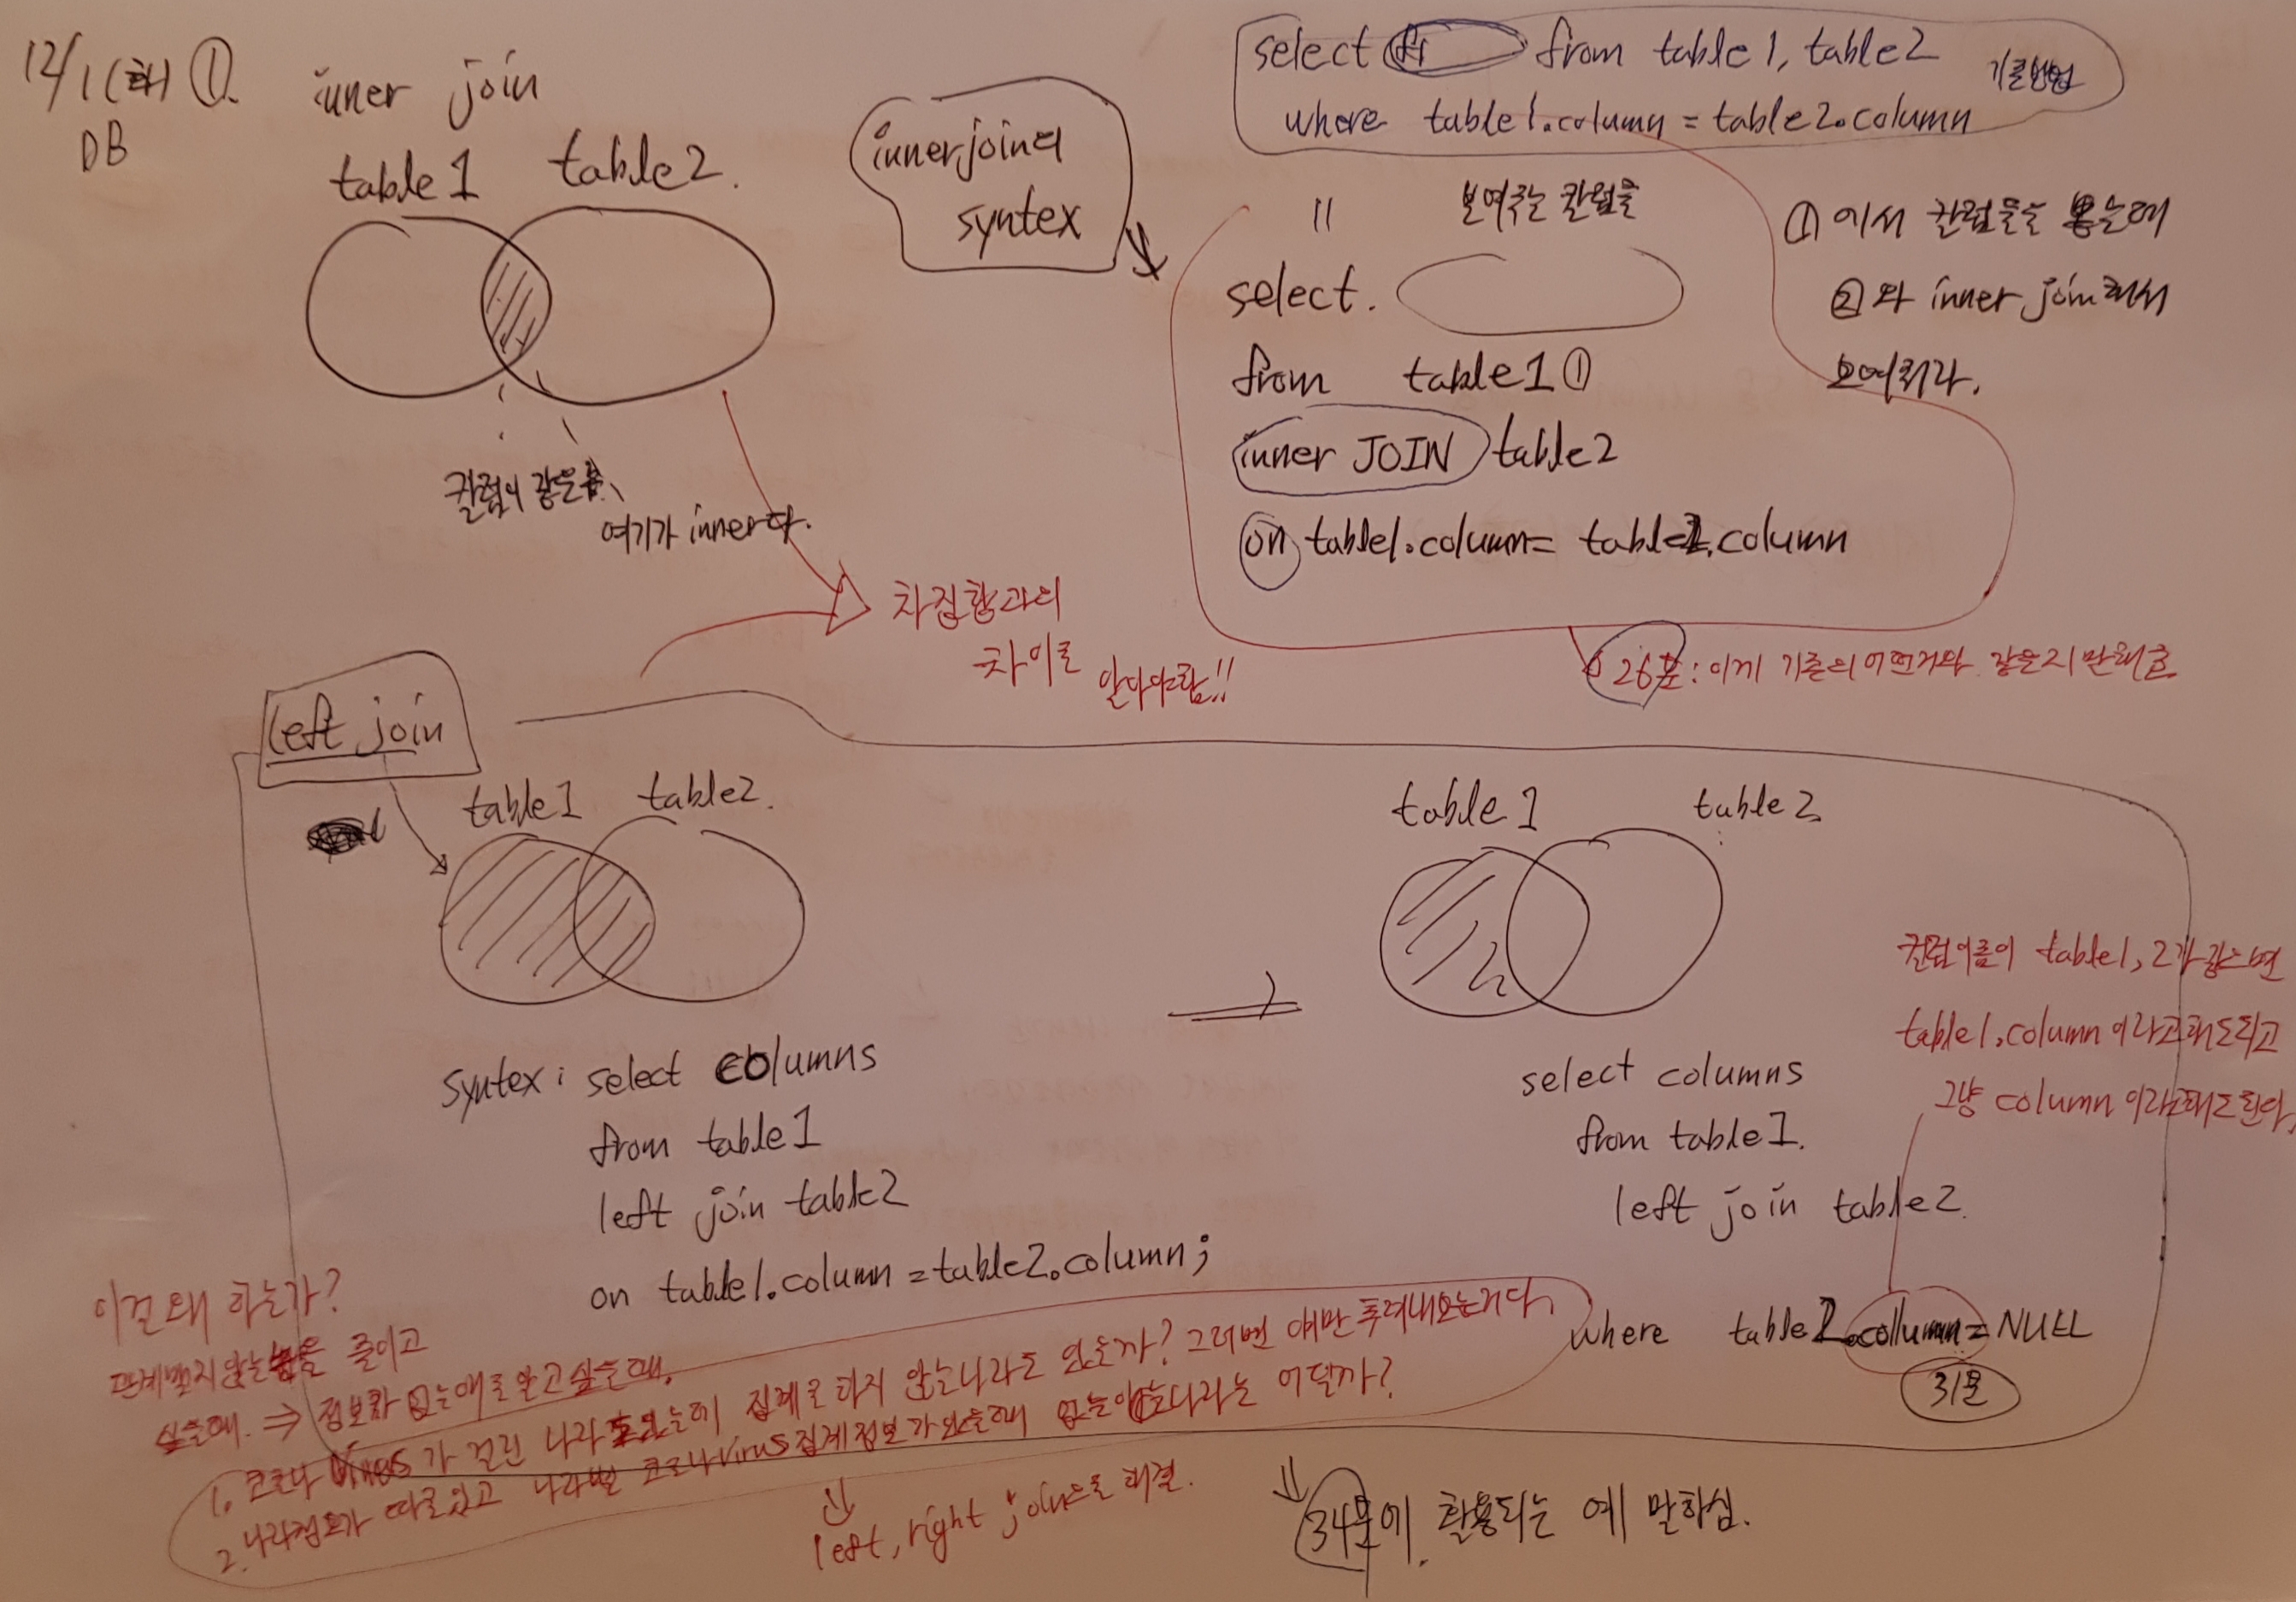 12/1 (화) ①.
DB
inner join
table1 table2.
칼럼이 같은
여기가 inner다.
inner join의
syntex
select from table1, table2
where table1.column = table2.column
기존방법
보여주는 칼럼들
select.
from table1 ①
inner JOIN table2
on table1.column = table2.column
① 에서 칼럼들을 뽑는데
② 와 inner join해서
보여줘라.
차집합과의
차이로
알아야함!!
26분: 이게 기존의 어떤거와 같은지 말해줌
left join
table1 table2.
syntex: select columns
from table1
left join table2
on table1.column = table2.column;
table1 table2
select columns
from table1.
left join table2.
where table2.collumn = NULL
31분
칼럼이름이 table1, 2가 같으면
table1.column 이라고해도되고
그냥 column 이라고해도된다.
이걸 왜 하는가?
관계맺지않는 줄이고
싶을때. ⇒ 정보가 없는애를 알고싶을때.
1. 코로나 virus가 걸린 나라 있는데 집계로 하지 않는나라도 있을까? 그러면 얘만 추려내오는거다.
2. 나라정보가 따로있고 나라별 코로나 virus 집계정보가있을때 없는 나라는 어딜까?
left, right join으로 해결.
34분에 활용되는 예 말하심.